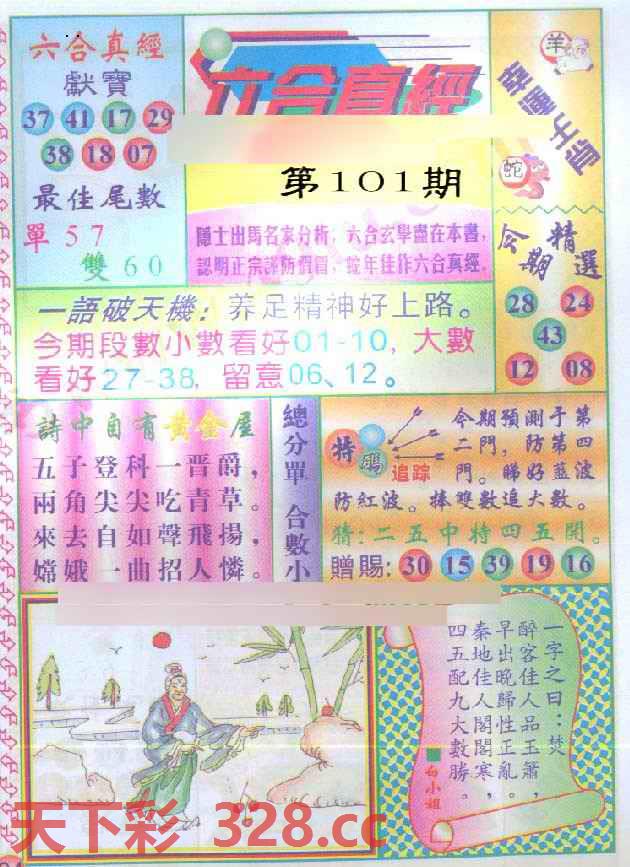 六合真經
獻寶
37 41 17 29
38 18 07
最佳尾數
單 5 7
雙 6 0
六合真經
第101期
隱士出馬名家分析，六合玄學盡在本書，
認明正宗謹防假冒，蛇年佳作六合真經。
羊
幸運生肖
蛇
今期精選
28 24
43
12 08
一語破天機：养足精神好上路。
今期段數小數看好01-10，大數
看好27-38，留意06、12。
詩中自有黃金屋
五子登科一晋爵，
兩角尖尖吃青草。
來去自如聲飛揚，
嫦娥一曲招人憐。
總分單 合數小
特碼
追踪
今期預測于第
二門，防第四
門。睇好藍波
防紅波。捧雙數追大數。
猜：二五中特四五開。
贈賜：30 15 39 19 16
一字之曰：焚
醉客佳人品玉簫，
早出晚歸性正亂。
秦地佳人閣閣寒，
四五配九大數勝。
白小姐
天下彩 328.cc